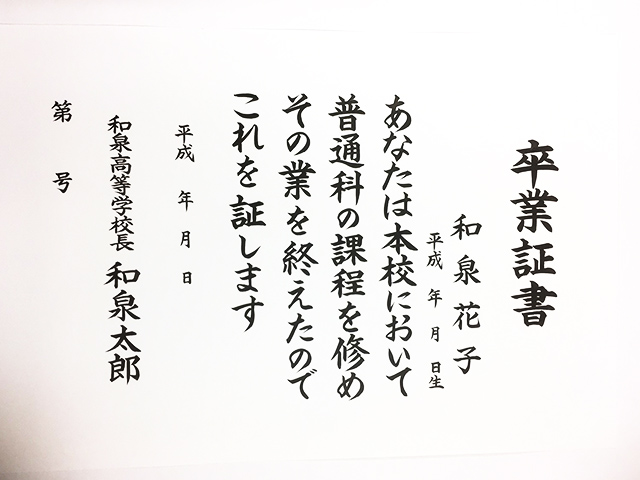 卒業証書
和泉花子
平成　年　月　日生
あなたは本校において
普通科の課程を修め
その業を終えたので
これを証します
平成　年　月　日
和泉高等学校長　和泉太郎
第　号